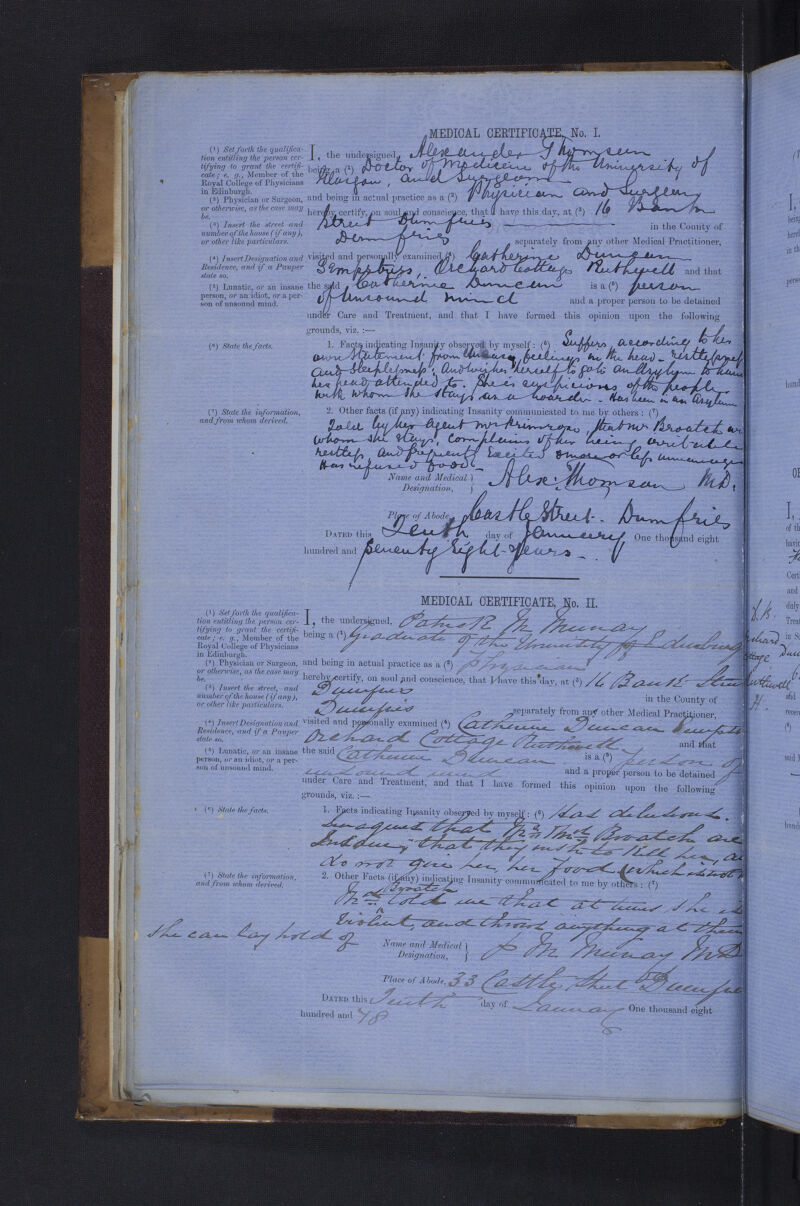 MEDICAL CERTIFICATE, No. I.
(¹) Set forth the qualifica-
tion entitling the person cer-
tifying to grant the certifi-
cate; e. g., Member of the
Royal College of Physicians
in Edinburgh.
I, the undersigned, Alexander Thomson
being a (¹) Doctor of Medicine of the University of
Glasgow, and Surgeon
(²) Physician or Surgeon,
or otherwise, as the case may
be.
and being in actual practice as a (²) Physician and Surgeon
(³) Insert the street and
number of the house (if any),
or other like particulars.
hereby certify, on soul and conscience, that I have this day, at (³) 16 Bank
Street Dumfries in the County of
Dumfries separately from any other Medical Practitioner,
(⁴) Insert Designation and
Residence, and if a Pauper
state so.
visited and personally examined (⁴) Catherine Duncan
Orchard Cottage Ruthwell and that
(⁵) Lunatic, or an insane
person, or an idiot, or a per-
son of unsound mind.
the said Catherine Duncan is a (⁵) person
of unsound mind and a proper person to be detained
under Care and Treatment, and that I have formed this opinion upon the following
grounds, viz. :—
(⁶) State the facts.
1. Facts indicating Insanity observed by myself: (⁶) Suffers according to her
own statement from uneasy feelings in the head - restlessness
and sleeplessness; And wishes herself to go to an Asylum to have
her head attended to. She is suspicious of the people
with whom she stays as a boarder. Has been in an Asylum
(⁷) State the information,
and from whom derived.
2. Other facts (if any) indicating Insanity communicated to me by others: (⁷)
Told by her agent Mr Primrose, that Mr Broatch wi
whom she stays, complains of her being irritable
restless and frequently Excited & more or less
Has refused food.
Name and Medical
Designation,
Alex: Thomson M.D.
Place of Abode, Castle Street. Dumfries
DATED this Tenth day of January One thousand eight
hundred and Seventy Eight years.
MEDICAL CERTIFICATE, No. II.
(¹) Set forth the qualifica-
tion entitling the person cer-
tifying to grant the certifi-
cate; e. g., Member of the
Royal College of Physicians
in Edinburgh.
I, the undersigned, Patrick M. Murray
being a (¹) Graduate of the University of Edinburg
(²) Physician or Surgeon,
or otherwise, as the case may
be.
and being in actual practice as a (²) Physician
(³) Insert the street, and
number of the house (if any),
or other like particulars.
hereby certify, on soul and conscience, that I have this day, at (³) 16 Bank Stree
Dumfries in the County of
Dumfries separately from any other Medical Practitioner,
(⁴) Insert Designation and
Residence, and if a Pauper
state so.
visited and personally examined (⁴) Catherine Duncan
Orchard Cottage Ruthwell and that
(⁵) Lunatic, or an insane
person, or an idiot, or a per-
son of unsound mind.
the said Catherine Duncan is a (⁵) person of
unsound mind and a proper person to be detained
under Care and Treatment, and that I have formed this opinion upon the following
grounds, viz. :—
(⁶) State the facts.
1. Facts indicating Insanity observed by myself: (⁶) Has delusions.
Imagines that Mr & Mrs Broatch are
that they wish to kill her, a
do not give her her food (which is not
(⁷) State the information,
and from whom derived.
2. Other Facts (if any) indicating Insanity communicated to me by others: (⁷)
Mrs Broatch told me that at times she is
violent, and throws anything at them
she can lay hold of
Name and Medical
Designation,
P M Murray MD
Place of Abode, 33 Castle Street Dumfrie
DATED this Tenth day of January One thousand eight
hundred and 78